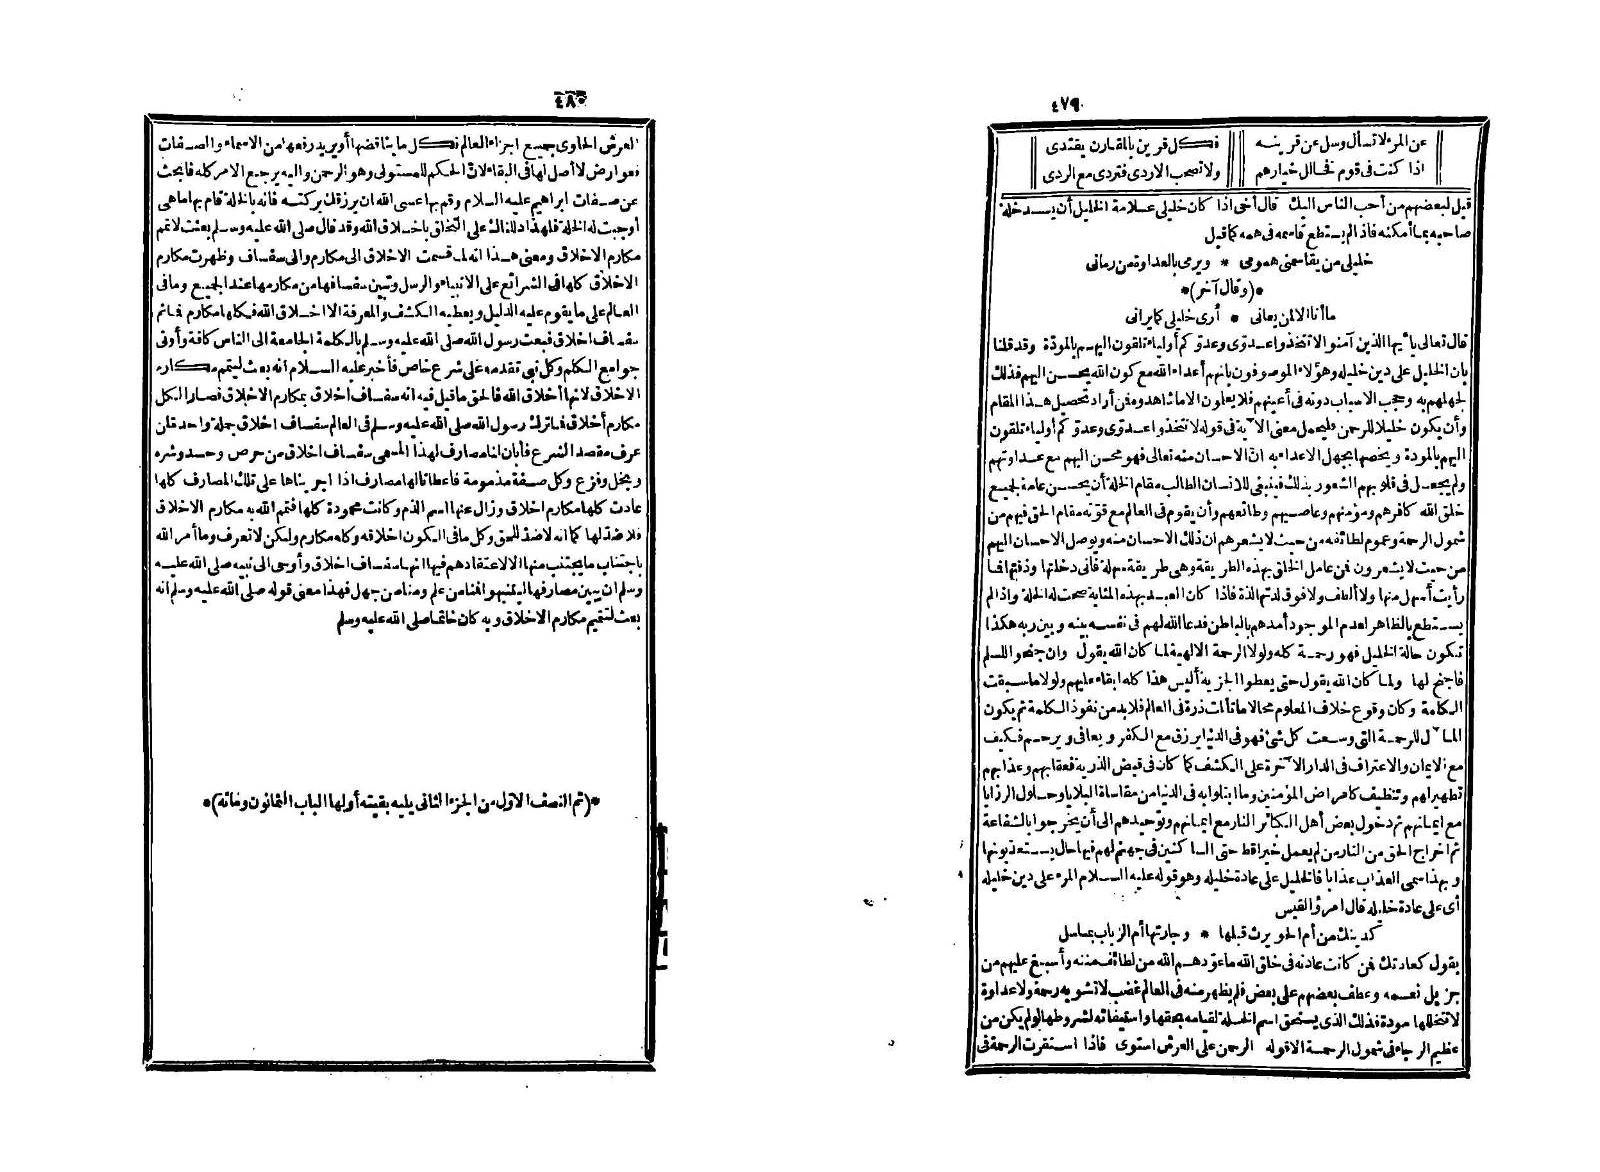 ٤٧٩
عن المرء لا تسأل وسل عن قرينه فكل قرين بالمقارن يقتدى
اذا كنت فى قوم فخالل خيارهم ولا تصحب الاردى فتردى مع الردى
قيل لبعضهم من أحب الناس اليك قال أخى اذا كان خليلى علامة الخليل أن يسد خلة
صاحبه بما أمكنه فاذا لم يستطع قاسمه فى همه كما قيل
خليلى من يقاسمنى همومى * ويرمى بالعداوة من رمانى
*(وقال آخر)*
ما أنا الا لمن بغانى * أرى خليلى كما يرانى
قال تعالى يا أيها الذين آمنوا لا تتخذوا عدوى وعدوكم أولياء تلقون اليهم بالمودة وقد قلنا
بان الخليل على دين خليله وهؤلاء الموصوفون بانهم أعداء الله مع كون الله يحسن اليهم فذلك
لجهلهم به وحجب الاسباب دونه فى أعينهم فلا يعلون الا ماشاهدوه فن أراد تحصيل هذا المقام
وأن يكون خليلا للرحمن فليجعل معنى الآية فى قوله لا تتخذوا عدوى وعدوكم أولياء تلقون
اليهم بالمودة ويخصها بجهل الاعداء به انّ الاحسان منه تعالى فهو محسن اليهم مع عداوتهم
ولم يجعل فى قلوبهم الشعور بذلك فينبغى للانسان الطالب مقام الخلة أن يحسن عامة لجميع
خلق الله كافرهم ومؤمنهم وعاصيهم وطائعهم وأن يقوم فى العالم مع قوّته مقام الحق فيهم من
شمول الرحمة وعموم لطائفه من حيث لا يشعرهم ان ذلك الاحسان منه ويوصل الاحسان اليهم
من حيث لا يشعرون فن عامل الخلق بهذه الطريقة وهى طريقة سهلة فانى دخلتها وذقتها فما
رأيت أسهل منها ولا ألطف ولا فوق لذتها لذة فاذا كان العبد بهذه المثابة صحت له الخلة واذا لم
يستطع بالظاهر لعدم الموجود أمدهم بالباطن فدعا الله لهم فى نفسه بينه وبين ربه هكذا
تكون حالة الخليل فهو رحمة كله ولولا الرحمة الالهية لما كان الله يقول وان جنحوا للسلم
فاجنح لها ولما كان الله يقول حتى يعطوا الجزية أليس هذا كله ابقاء عليهم ولولا ما سبقت
الكلمة وكان وقوع خلاف المعلوم محالا ما تألمت ذرة فى العالم فلا بد من نفوذ الكلمة ثم يكون
المآل للرحمة التى وسعت كل شئ فهو فى الدنيا يرزق مع الكفر ويعافى ويرحم فكيف
مع الايمان والاعتراف فى الدار الآخرة على الكشف كما كان فى قبض الذرية فعقابهم وعذابهم
تطهير لهم وتنظيف كامراض المؤمنين وما ابتلوا به فى الدنيا من مقاساة البلايا وحلول الرزايا
مع ايمانهم ثم دخول بعض أهل الكبائر النار مع ايمانهم وتوحيدهم الى أن يخرجوا بالشفاعة
ثم اخراج الحق من النار من لم يعمل خيرا قط حتى الساكنين فى جهنم لهم فيها حال يستعذبونها
وبهذا سمى العذاب عذابا فالخليل على عادة خليله وهو قوله عليه السلام المرء على دين خليله
أى على عادة خليله قال امرؤ القيس
كدينك من أم الحويرث قبلها * وجارتها أم الرباب بمأسل
يقول كعادتك فن كانت عادته فى خلق الله ما عوّدهم الله من لطائف مننه وأسبغ عليهم من
جزيل نعمه وعطف بعضهم على بعض فلم يظهر منه فى العالم غضب لا تشوبه رحمة ولا عداوة
لا تتخللها مودة فذلك الذى يستحق اسم الخلة لقيامه بحقها واستيفائه لشروطها لو لم يكن من
عظيم الرجاء فى شمول الرحمة الا قوله الرحمن على العرش استوى فاذا استقرت الرحمة فى
٤٨٠
العرش الحاوى بجميع اجزاء العالم فكل ما يناقضها أو يريد رفعها من الاسماء والصفات
فعوارض لا أصل لها فى البقاء لان الحكم للمستولى وهو الرحمن واليه يرجع الامر كله فابحث
عن صفات ابراهيم عليه السلام وقم بها عسى الله ان يرزقك بركته فانه بالخلة قام بها ما هى
أوجبت له الخلة فلهذا دللناك على التخلق باخلاق الله وقد قال صلى الله عليه وسلم بعثت لاتمم
مكارم الاخلاق ومعنى هذا انه لما قسمت الاخلاق الى مكارم والى سفساف وظهرت مكارم
الاخلاق كلها فى الشرائع على الانبياء والرسل وتبين سفسافها من مكارمها عند الجميع وما فى
العالم على ما يقوم عليه الدليل ويعطيه الكشف والمعرفة الا اخلاق الله فكلها مكارم فاتم
سفساف اخلاق فبعث رسول الله صلى الله عليه وسلم بالكلمة الجامعة الى الناس كافة وأوتى
جوامع الكلم وكل نبى تقدمه على شرع خاص فأخبر عليه السلام أنه بعث ليتمم مكارم
الاخلاق لانها أخلاق الله فالحق ما قيل فيه انه سفساف اخلاق بمكارم الاخلاق فصار الكل
مكارم أخلاق فماترك رسول الله صلى الله عليه وسلم فى العالم سفساف اخلاق جملة واحدة لمن
عرف مقصد الشرع فأبان لنا مصارف لهذا المسمى سفساف اخلاق من حرص وحسد وشره
وبخل وفزع وكل صفة مذمومة فاعطانا لها مصارف اذا اجريناها على تلك المصارف كلها
عادت كلها مكارم اخلاق وزال عنها اسم الذم وكانت محمودة كلها فتمم الله به مكارم الاخلاق
فلا ضدّ لها كما انه لا ضدّ للحق وكل ما فى الكون اخلاقه وكله مكارم ولكن لا تعرف وما أمر الله
باجتناب ما يجتنب منها الا لاعتقادهم فيها انها سفساف اخلاق وأوحى الى نبيه صلى الله عليه
وسلم ان يبين مصارفها ليتنبهوا فمنا من علم ومنا من جهل فهذا معنى قوله صلى الله عليه وسلم انه
بعث لتتميم مكارم الاخلاق وبه كان خاتما صلى الله عليه وسلم
*(تم النصف الاوّل من الجزء الثانى يليه بقيته أولها الباب الثمانون ومائة)*